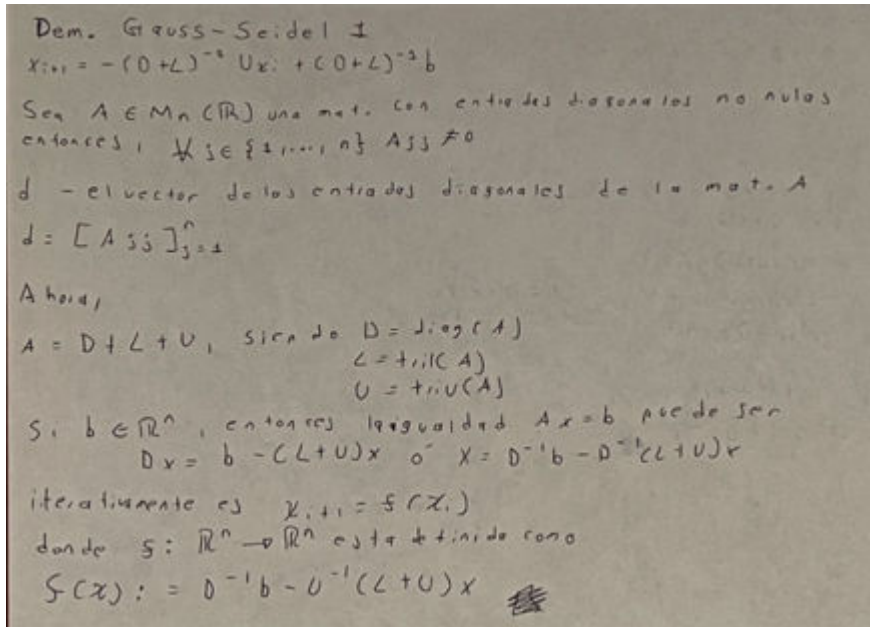 Dem. Gauss-Seidel 1
x_{i+1} = -(D+L)^{-1} U x_i + (D+L)^{-1} b
Sea A ∈ Mn (ℝ) una mat. con entradas diagonales no nulas
entonces, ∀ j ∈ {1,..., n} Ajj ≠ 0
d - el vector de las entradas diagonales de la mat. A
d = [Ajj]^n_{j=1}
Ahora,
A = D+L+U, siendo D = diag(A)
L = tril(A)
U = triu(A)
Si b ∈ ℝ^n, entonces la igualdad Ax=b puede ser
Dx = b - (L+U)x o´ X = D^{-1}b - D^{-1}(L+U)x
iterativamente es x_{i+1} = f(x_i)
donde f: ℝ^n → ℝ^n esta definido como
f(x) := D^{-1}b - D^{-1}(L+U)x